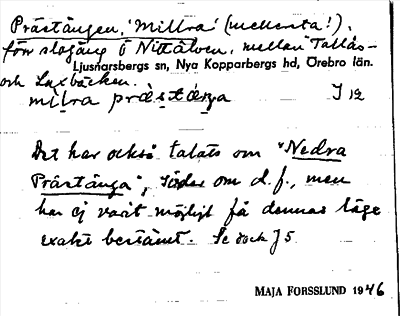 Prästängen, 'Millra' (mellersta!).
förr slogäng ö Nittälven, mellan Tallås-
Ljusnarsbergs sn, Nya Kopparbergs hd, Örebro län.
och Laxbäcken.
milra prästäŋa J 12
Det har också talats om "Nedra
Prästänga", söder om d.f., men
har ej varit möjligt få dennas läge
exakt bestämt. Se dock J 5.
MAJA FORSSLUND 1946